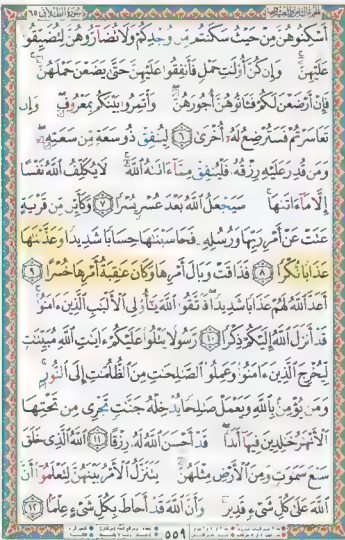 سورة الطلاق ٦٥
أَسْكِنُوهُنَّ مِنْ حَيْثُ سَكَنتُم مِّن وُجْدِكُمْ وَلَا تُضَآرُّوهُنَّ لِتُضَيِّقُوا۟
عَلَيْهِنَّ ۚ وَإِن كُنَّ أُو۟لَٰتِ حَمْلٍ فَأَنفِقُوا۟ عَلَيْهِنَّ حَتَّىٰ يَضَعْنَ حَمْلَهُنَّ ۚ
فَإِنْ أَرْضَعْنَ لَكُمْ فَـَٔاتُوهُنَّ أُجُورَهُنَّ ۖ وَأْتَمِرُوا۟ بَيْنَكُم بِمَعْرُوفٍ ۖ وَإِن
تَعَاسَرْتُمْ فَسَتُرْضِعُ لَهُۥٓ أُخْرَىٰ ﴿٦﴾ لِيُنفِقْ ذُو سَعَةٍ مِّن سَعَتِهِۦ ۖ
وَمَن قُدِرَ عَلَيْهِ رِزْقُهُۥ فَلْيُنفِقْ مِمَّآ ءَاتَىٰهُ ٱللَّهُ ۚ لَا يُكَلِّفُ ٱللَّهُ نَفْسًا
إِلَّا مَآ ءَاتَىٰهَا ۚ سَيَجْعَلُ ٱللَّهُ بَعْدَ عُسْرٍ يُسْرًا ﴿٧﴾ وَكَأَيِّن مِّن قَرْيَةٍ
عَتَتْ عَنْ أَمْرِ رَبِّهَا وَرُسُلِهِۦ فَحَاسَبْنَٰهَا حِسَابًا شَدِيدًا وَعَذَّبْنَٰهَا
عَذَابًا نُّكْرًا ﴿٨﴾ فَذَاقَتْ وَبَالَ أَمْرِهَا وَكَانَ عَٰقِبَةُ أَمْرِهَا خُسْرًا ﴿٩﴾
أَعَدَّ ٱللَّهُ لَهُمْ عَذَابًا شَدِيدًا ۖ فَٱتَّقُوا۟ ٱللَّهَ يَٰٓأُو۟لِى ٱلْأَلْبَٰبِ ٱلَّذِينَ ءَامَنُوا۟ ۚ
قَدْ أَنزَلَ ٱللَّهُ إِلَيْكُمْ ذِكْرًا ﴿١٠﴾ رَّسُولًا يَتْلُوا۟ عَلَيْكُمْ ءَايَٰتِ ٱللَّهِ مُبَيِّنَٰتٍ
لِّيُخْرِجَ ٱلَّذِينَ ءَامَنُوا۟ وَعَمِلُوا۟ ٱلصَّٰلِحَٰتِ مِنَ ٱلظُّلُمَٰتِ إِلَى ٱلنُّورِ ۚ
وَمَن يُؤْمِنۢ بِٱللَّهِ وَيَعْمَلْ صَٰلِحًا يُدْخِلْهُ جَنَّٰتٍ تَجْرِى مِن تَحْتِهَا
ٱلْأَنْهَٰرُ خَٰلِدِينَ فِيهَآ أَبَدًا ۖ قَدْ أَحْسَنَ ٱللَّهُ لَهُۥ رِزْقًا ﴿١١﴾ ٱللَّهُ ٱلَّذِى خَلَقَ
سَبْعَ سَمَٰوَٰتٍ وَمِنَ ٱلْأَرْضِ مِثْلَهُنَّ يَتَنَزَّلُ ٱلْأَمْرُ بَيْنَهُنَّ لِتَعْلَمُوٓا۟ أَنَّ
ٱللَّهَ عَلَىٰ كُلِّ شَىْءٍ قَدِيرٌ وَأَنَّ ٱللَّهَ قَدْ أَحَاطَ بِكُلِّ شَىْءٍ عِلْمًۢا ﴿١٢﴾
٥٥٩